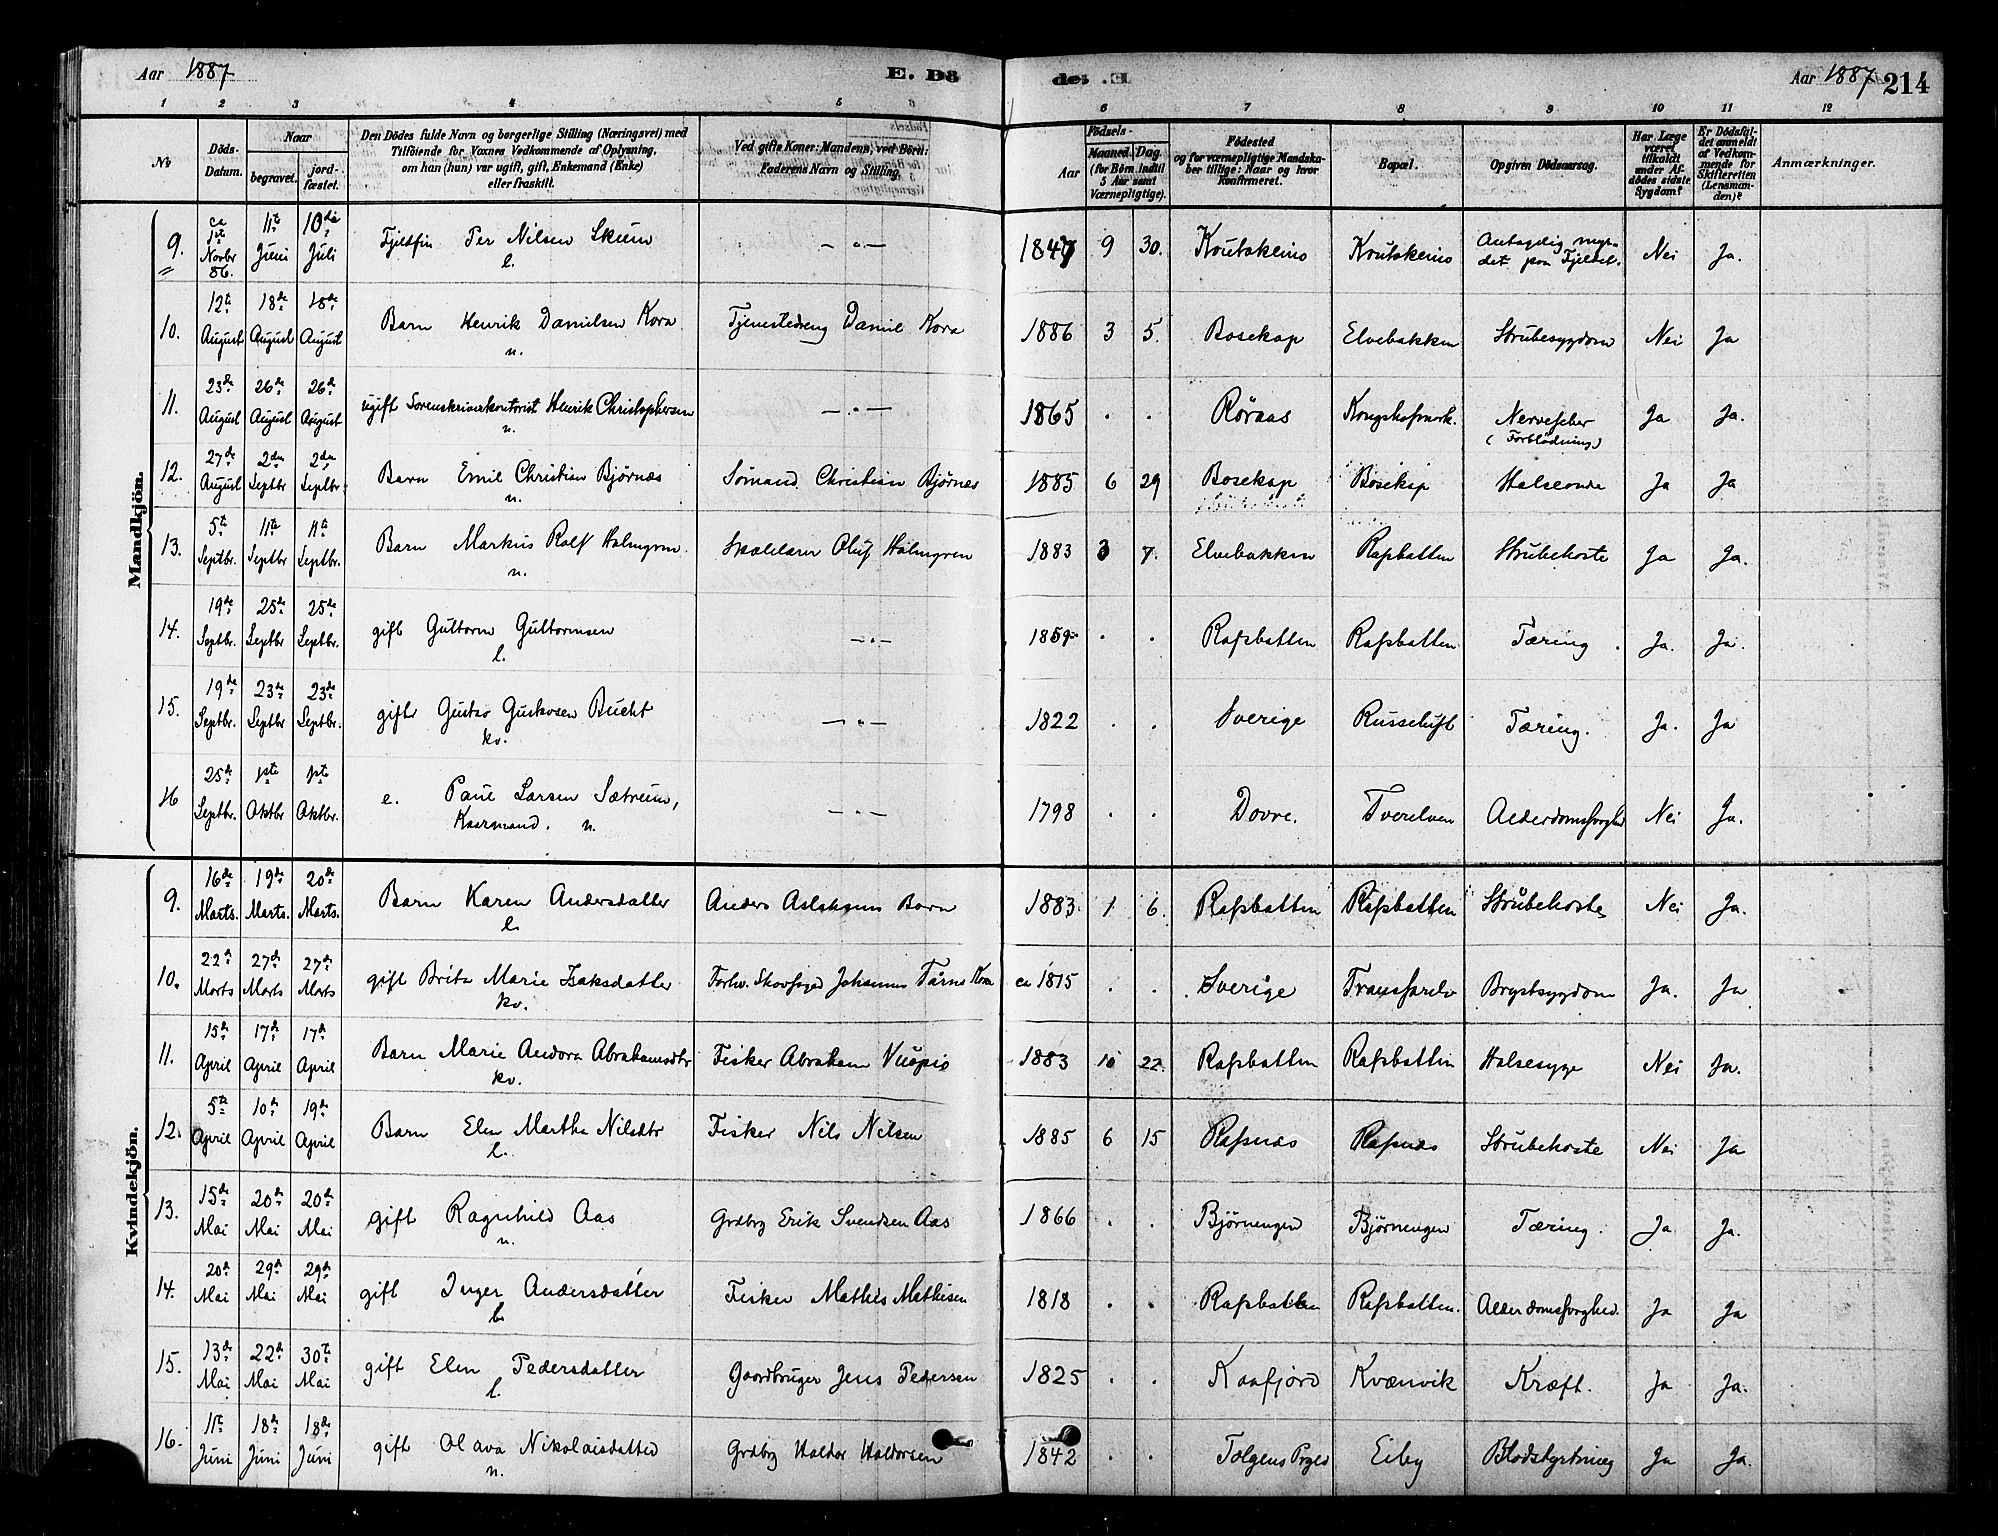 Aar 1887 E. Dö
de. E. Aar 1887 214
1 2 3 4 5 6 7 8 9 10 11 12
No Döds-Datum. Naar begravet. jordfæstet. Den Dödes fulde Navn og borgerlige Stilling (Næringsvei) med Tilföiende for Voxnes Vedkommende af Oplysning, om han (hun) var ugift, gift, Enkemand (Enke) eller fraskilt. Ved gifte Koner: Mandens, ved Börn: Faderens Navn og Stilling. Födsels- Aar Maaned. Dag. (for Börn indtil 5 Aar samt Værnepligtige). Födested og for værnepligtige Mandskaber tillige: Naar og hvor Konfirmeret. Bopæl. Opgiven Dödsaarsag. Har Læge været tilkaldt under Afdödes sidste Sygdom? Er Dödsfaldet anmeldt af Vedkommende for Skifteretten (Lensmanden)? Anmærkninger.
Mandkjön.
9. ca 1ste Novbr 86. 11te Juni 10de Juli Fjeldfin Per Nilsen Skum l. — " — 1847 9 30. Koutokeino Koutokeino Antagelig myrdet paa Fjeldet. Nei Ja.
10. 12te August 18de August 18de August Barn Henrik Danielsen Kora n. Tjenestedreng Daniel Kora 1886 3 5. Bosekop Elvebakken Strubesygdom Nei Ja
11. 23de August 26de August 26de August ugift Sorenskriverkontorist Henrik Christophersen n. — " — 1865 . . Röraas Kongshofmark. Nervefeber (Forblödning) Ja Ja.
12. 27de August 2den Septbr 2den Septbr Barn Emil Christian Bjørnæs n. Sömand Christian Bjørnæs 1885 6 29 Bosekop Bosekop Halseonde Ja Ja
13. 5te Septbr. 11te Septbr 11te Septbr. Barn Markus Rolf Holmgren. n. Skolelærer Oluf Holmgren 1883 3 7. Elvebakken Rafsbotten Strubehoste Ja Ja.
14. 19de Septbr. 25de Septbr 25de Septbr. gift Guttorm Guttormsen l. — " — 1859 . . Rafsbotten Rafsbotten Tæring . Ja. Ja.
15. 19de Septbr. 23de Septbr 23de Septbr. gift Gustav Gustavsen Bucht kv. — " — 1822 . . Sverige Russeluft Tæring. Ja. Ja
16 25de Septbr. 1ste Oktbr 1ste Oktbr. e. Paul Larsen Sætrum, Kaarmand. n. — " — 1798 . . Dovre. Tverelven Alderdomssvaghed Nei Ja.
Kvindekjön.
9. 16de Marts. 19de Marts. 20de Marts. Barn Karen Andersdatter l. Anders Aslaksens Barn 1883. 1 6. Rafsbotten Rafsbotten Strubehoste Nei Ja.
10. 22de Marts 27de Marts 27de Marts gift Brita Marie Isaksdatter kv. Forhv. Skovfoged Johannes Kora ca 1815 . . Sverige Transfarelv Brystsygdom Ja. Ja
11. 15de April 17de April 17de April Barn Marie Andora Abrahamsdtr kv. Fisker Abraham Vuopio 1883 10 22. Rafsbotten Rafsbotten Halsesyge Nei Ja.
12. 5te April 10de April 19de April Barn Elen Martha Nilsdtr l. Fisker Nils Nilsen 1885 6 15 Rafsnæs Rafsnæs Strubehoste Nei Ja
13. 15de Mai 20de Mai 20de Mai gift Ragnhild Aas n. Grdbrg Erik Svendsen Aas 1866 . . Bjørnengen Bjørnengen Tæring. Ja Ja.
14. 20de Mai 29de Mai 29de Mai gift Inger Andersdatter l. Fisker Mathis Mathisen 1818 . . Rafsbotten Rafsbotten. Alderdomssvaghed. Ja Ja
15. 13de Mai 22de Mai 30te Mai gift Elen Pedersdatter l. Gaardbruger Jens Pedersen 1825 . . Kaafjord Kvænvik Kræft. Ja Ja.
16. 11te Juni 18de Juni 18de Juni gift Olava Nikolaisdatter n. Grdbrg Haldor Haldorsen 1842 . . Tolgens Prgld Eiby Blodstyrtning Ja Ja.